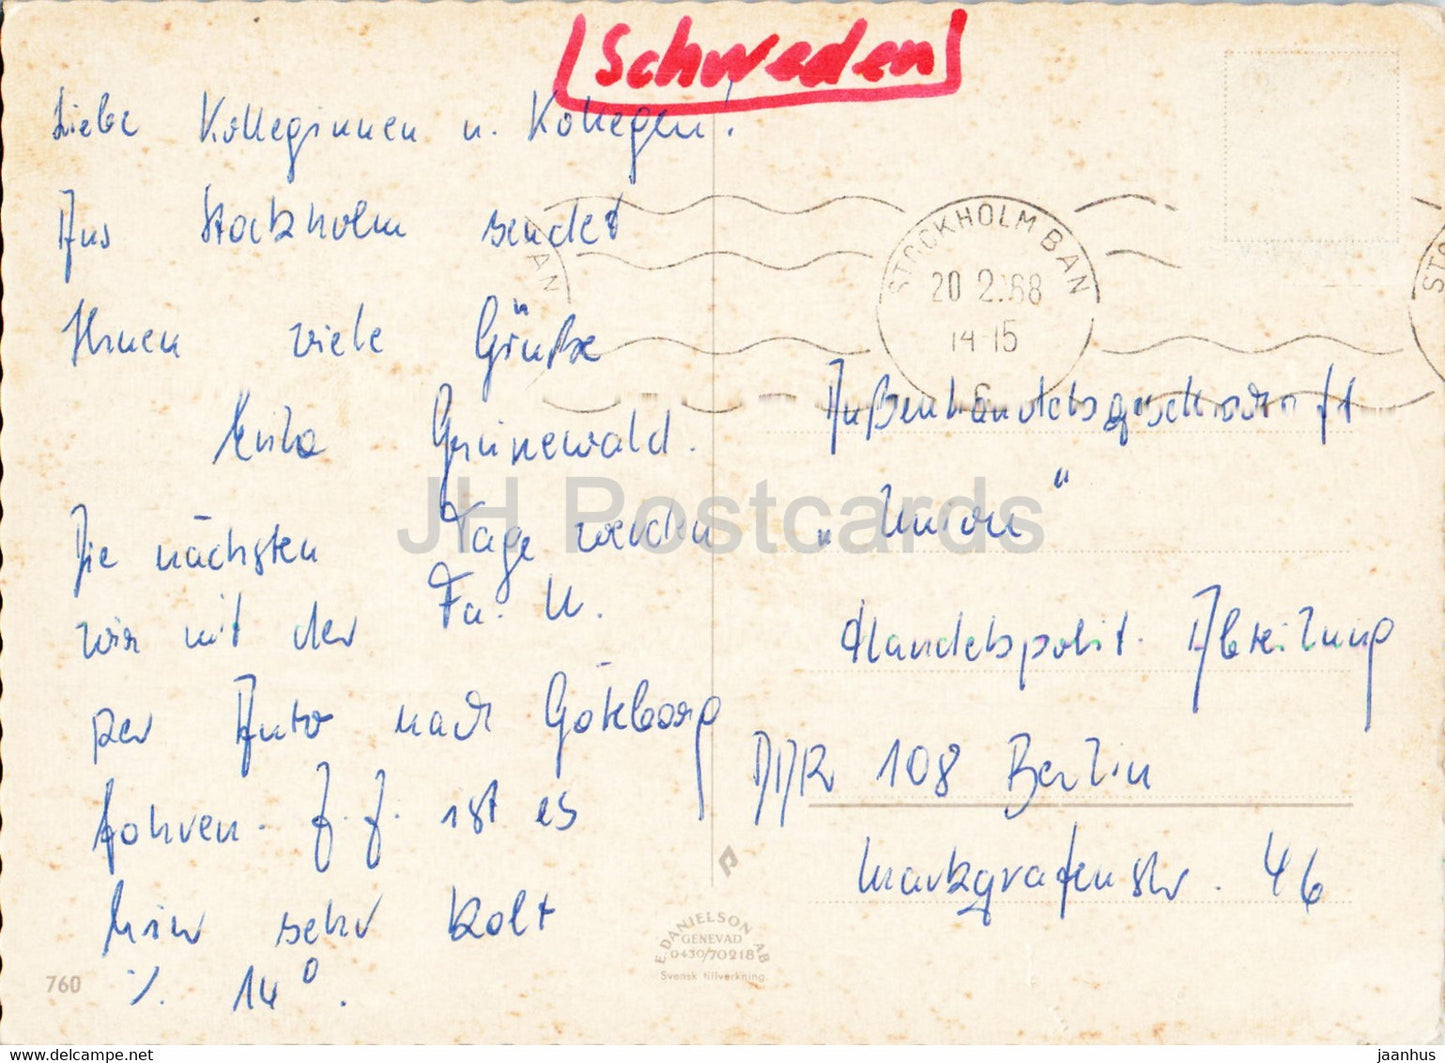 [Schweden]
Liebe Kolleginnen u. Kollegen!
Aus Stockholm sendet
Ihnen viele Grüße
Grünewald.
Die nächsten Tage werden
wir mit der Fa. U.
per Auto nach Göteborg
fahren. Z.Z. ist es
hier sehr kalt
./. 14°.
STOCKHOLM BAN
20 2.68
14-15
6
Außenhandelsgesellschaft
„Union"
Handelspolit. Abteilung
DDR 108 Berlin
Markgrafenstr. 46
E. DANIELSON AB
GENEVAD
0430/70218
Svensk tillverkning.
760
JH Postcards
www.delcampe.net
jaanhus